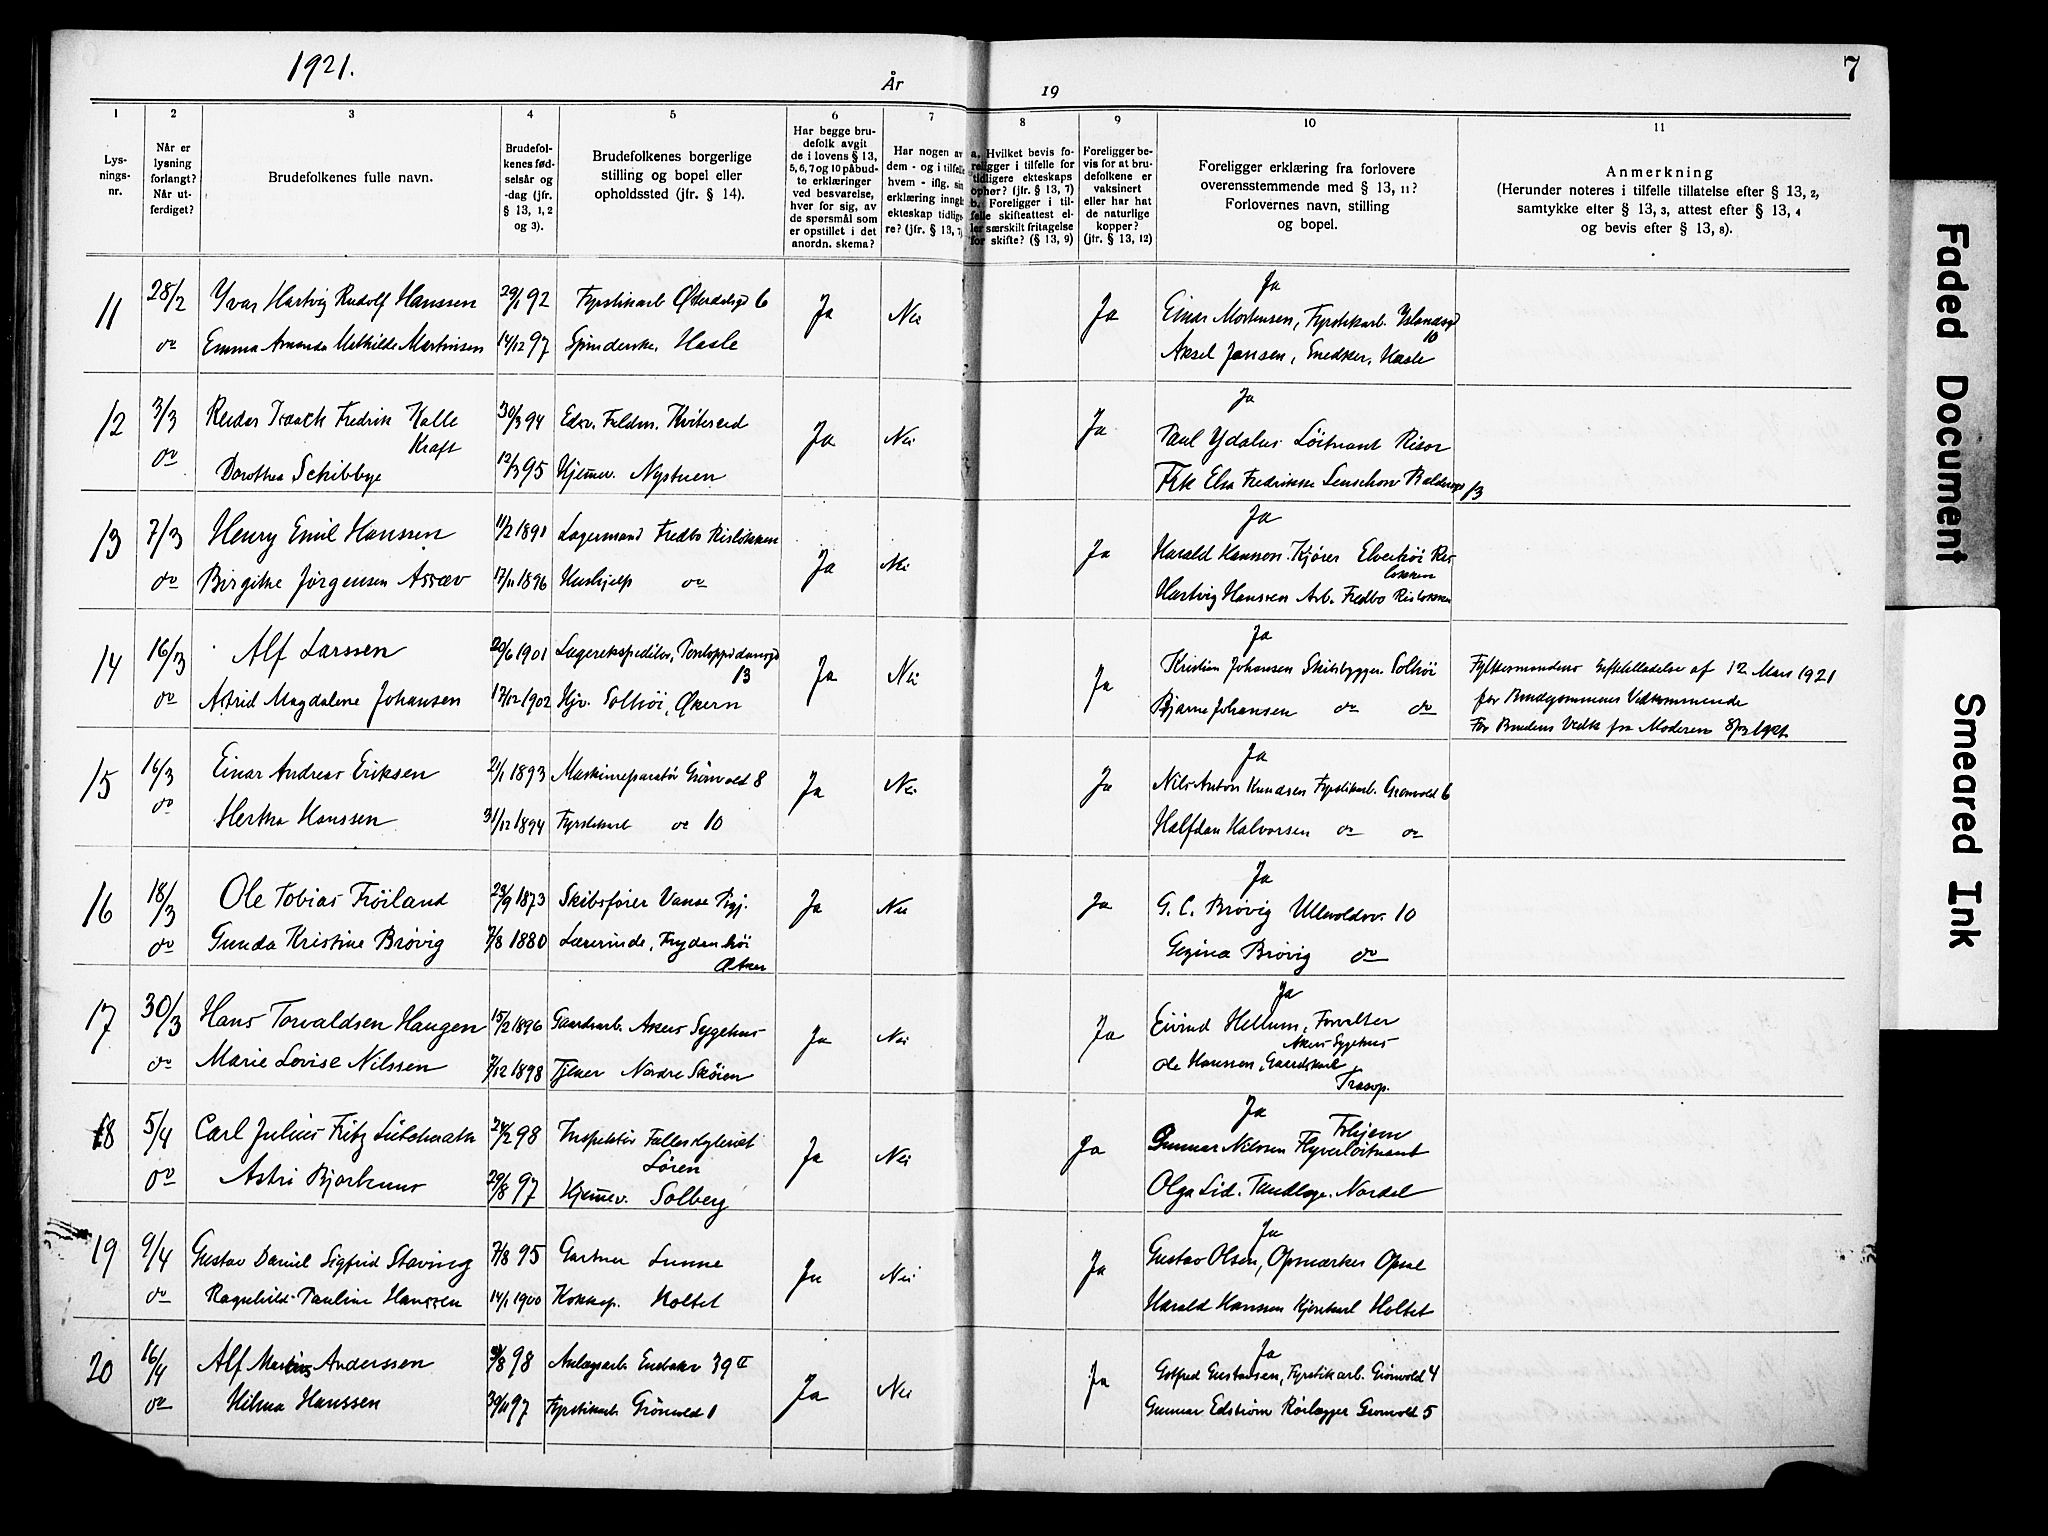 1921.
År
19
7
1
2
3
4
5
6
7
8
9
10
11
Lys-
nings-
nr.
Når er
lysning
forlangt?
Når ut-
ferdiget?
Brudefolkenes fulle navn.
Brudefol-
kenes fød-
selsår og
-dag (jfr.
§ 13, 1, 2
og 3).
Brudefolkenes borgerlige
stilling og bopel eller
opholdssted (jfr. § 14).
Har begge bru-
defolk avgit
de i lovens § 13,
5, 6, 7 og 10 påbud-
te erklæringer
ved besvarelse,
hver for sig, av
de spørsmål som
er opstillet i det
anordn. skema?
Har nogen av
dem - og i tilfelle
hvem - iflg. sin
erklæring inngå
ekteskap tidlige
re? (jfr. § 13, 7)
a. Hvilket bevis fo-
religger i tilfelle for
tidligere ekteskaps
ophør? (jfr. § 13, 7)
b. Foreligger i til-
felle skifteattest el-
ler særskilt fritagelse
for skifte? (§ 13, 9)
Foreligger be-
vis for at bru-
defolkene er
vaksinert
eller har hat
de naturlige
kopper?
(jfr. § 13, 12)
Foreligger erklæring fra forlovere
overensstemmende med § 13, 11?
Forlovernes navn, stilling
og bopel.
Anmerkning
(Herunder noteres i tilfelle tillatelse efter § 13, 2,
samtykke efter § 13, 3, attest efter § 13, 4
og bevis efter § 13, 8).
11 28/2 Yvar Hartvig Rudolf Hanssen 29/1 92 Fyrstikarb Østerdalsgd 6 Ja Nei Ja Ja
Einar Mortensen, Fyrstikarb. Islandsgd 10
do Emma Amanda Mathilde Martinsen 14/12 97 Spinderske Hasle Aksel Jansen, Snedker, Hasle
12 3/3 Reidar Isaack Fredrik Kalle Kraft 30/3 94 Edsv. Fuldm. Kviteseid Ja Nei Ja Ja
Paul Ydalus Löitnant Risør
do Dorothea Schibbye 12/3 95 Hjemmev. Nystuen Frk Elsa Fredrikke Lenschow Baldersgd 13
13 7/3 Henry Emil Hanssen 11/2 1891 Lagermand Fredbo Risløkken Ja Nei Ja Ja
Harald Hanssen Kjører Elverhöi Risløkken
do Birgitte Jørgensen Assæv 17/11 1896 Hushjelp do Hartvig Hanssen Arb. Fredbo Risløkken
14 16/3 Alf Larssen 20/6 1901 Lagerekspeditör, Pontoppidansgd 13 Ja Nei Ja Ja
Kristian Johansen Skibsbygger Solhöi
do Astrid Magdalene Johansen 17/12 1902 Hjv. Solhöi, Økern Bjarne Johansen do do
Fylkesmandens tilladelse af 12 Mars 1921
for Brudgommens Vedkommende
For Brudens Vedk fra Moderen 8/3 1921
15 16/3 Einar Andreas Eriksen 21/1 1893 Maskinreparatör Grönvold 8 Ja Nei Ja Ja
Nils Anton Knudsen Fyrstikarb. Grönvold 6
do Hertha Hanssen 31/12 1894 Fyrstikarb do 10 Halfdan Halvorsen do do
16 18/3 Ole Tobias Fröiland 23/9 1873 Skibsfører Vanse Ja Nei Ja Ja
G. C. Brøvig Ullevoldsv. 10
do Gunda Kristine Brøvig 7/8 1880 Lærerinde, Frydenhöi Østker Gezina Brøvig do
17 30/3 Hans Torvaldsen Haugen 15/2 1896 Gaardsarb. Akers Sygehus Ja Nei Ja Ja
Eivind Hellum, Forvalter Akers Sygehus
do Marie Lovise Nilssen 7/12 1898 Tjener Nordre Sköien Ole Hanssen, Gaardskarl Trasop.
18 5/4 Carl Julius Fritz Lütcherath 24/2 98 Inspektör Fællesskyteriet Lören Ja Nei Ja Ja
Gunnar Nilssen Flyverlöitnant
do Astri Bjerknes 29/8 97 Hjemmev. Solberg Olga Lid. Tandlæge. Nordal
19 9/4 Gustav Daniel Sigfrid Staving 7/8 95 Gartner Lunne Ja Nei Ja Ja
Gustav Olsen, Opmærker Opsal
do Ragnhild Pauline Hanssen 14/1 1900 Kokkep. Holtet Harald Hanssen Kjørekarl Holtet
20 16/4 Alf Marius Anderssen 8 98 Anlægsarb Enebakv 39 II Ja Nei Ja Ja
Gotfred Gustavsen, Fyrstikarb. Grönvold 4
do Hilma Hanssen 30/11 97 Fyrstikarb Grönvold 1 Gunnar Edström Rörlægger Grönvold 5
Faded Document
Smeared Ink